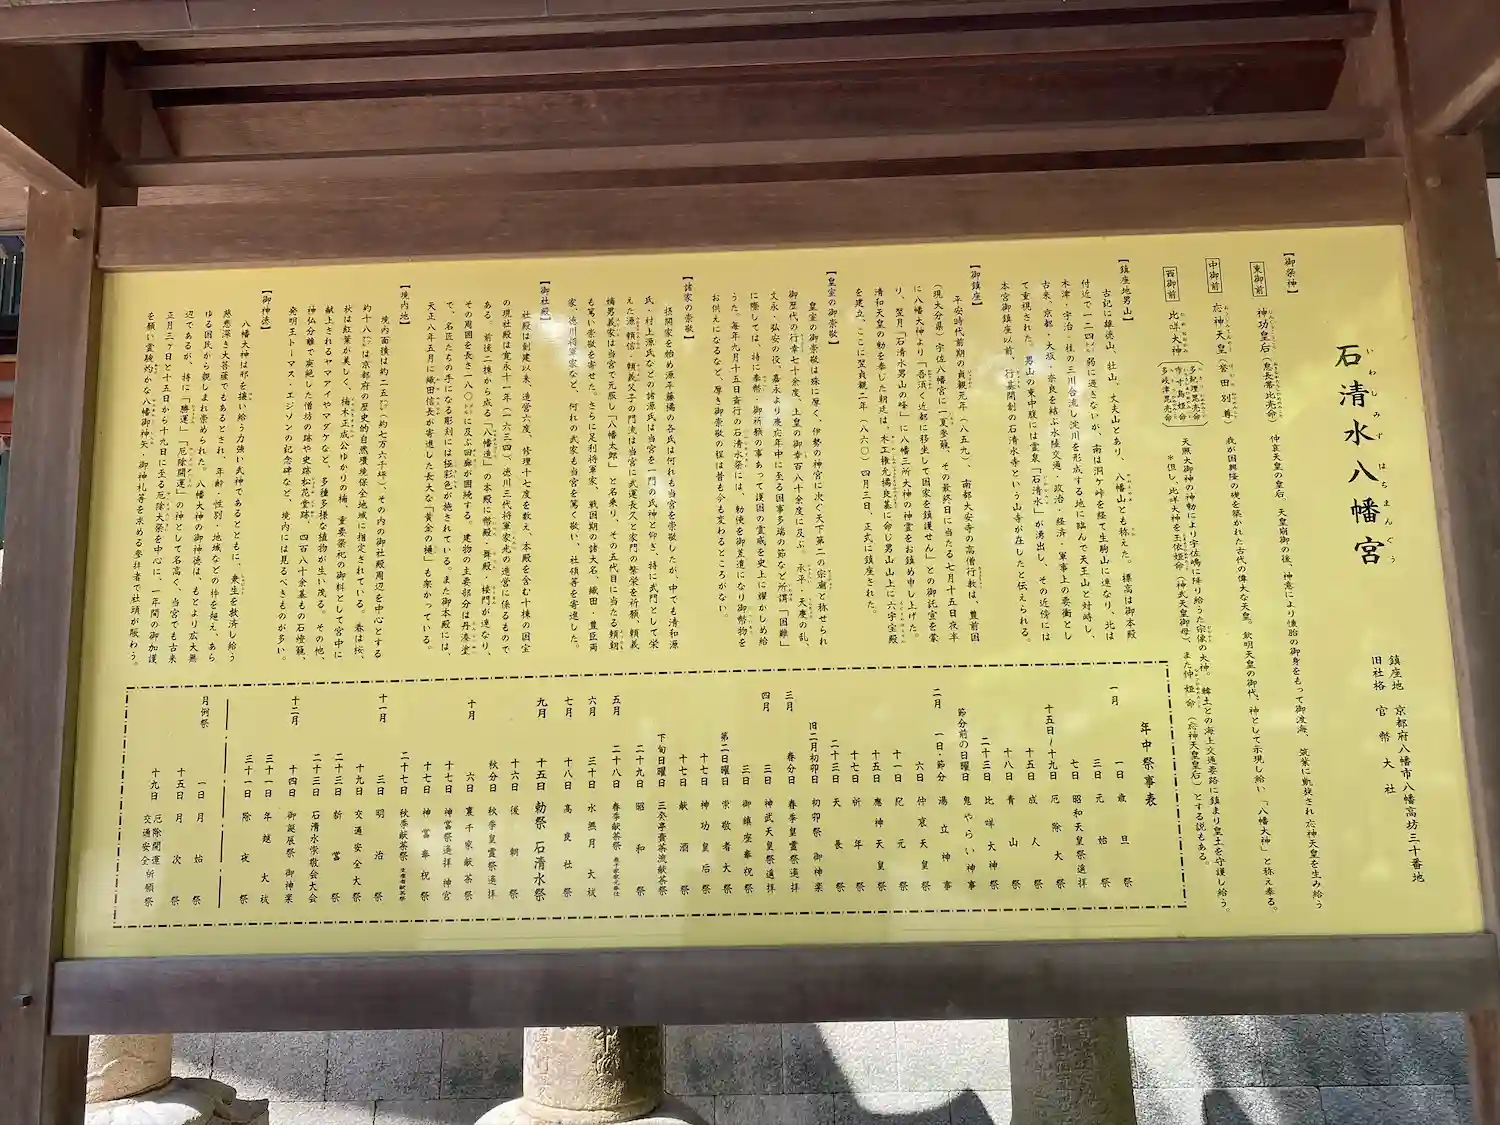 石清水八幡宮
いわしみず はちまんぐう
鎮座地 京都府八幡市八幡高坊三十番地
旧社格 官幣大社
【御祭神】
東御前 神功皇后(息長帯比売命) 仲哀天皇の皇后、天皇崩御の後、神意により懐胎の御身をもって御渡海、筑紫に凱旋され応神天皇を生み給う
中御前 応神天皇(誉田別尊) 我が国興隆の礎を築かれた古代の偉大な天皇。欽明天皇の御代、神として示現し給い「八幡大神」と称え奉る。
西御前 比咩大神
多紀理毘売命
市寸島姫命
多岐津毘売命
天照大御神の神勅により宇佐嶋に降り給うた宗像の大神。韓土との海上交通要路に鎮まり皇土を守護し給う。
*但し、比咩大神を玉依姫命(神武天皇御母)、また仲姫命(応神天皇皇后)とする説もある。
【鎮座地男山】
古記に雄徳山、牡山、丈夫山とあり、八幡山とも称えた。標高は御本殿
付近で一二四㍍弱に過ぎないが、南は洞ケ峠を経て生駒山に連なり、北は
木津・宇治・桂の三川合流し淀川を形成する地に臨んで天王山と対峙し、
古来、京都・大坂・奈良を結ぶ水陸交通、政治・経済・軍事上の要衝とし
て重視された。男山の東中腹には霊泉「石清水」が湧出し、その近傍には
本宮御鎮座以前、行基開創の石清水寺という山寺が在したと伝えられる。
【御鎮座】
平安時代前期の貞観元年(八五九)、南都大安寺の高僧行教は、豊前国
(現大分県)宇佐八幡宮に一夏参籠、その最終日に当たる七月十五日夜半
に八幡大神より「吾須く近都に移坐して国家を鎮護せん」との御託宣を蒙
り、翌月「石清水男山の峰」に八幡三所大神の神霊をお鎮め申し上げた。
清和天皇の勅を奉じた朝廷は、木工権允橘良基に命じ男山山上に六宇宝殿
を建立、ここに翌貞観二年(八六〇)四月三日、正式に鎮座された。
【皇室の御崇敬】
皇室の御崇敬は殊に厚く、伊勢の神宮に次ぐ天下第二の宗廟と称せられ
御歴代の行幸七十余度、上皇の御幸百八十余度に及ぶ。承平・天慶の乱、
文永、弘安の役、嘉永より慶応年中に至る国事多端の節など所謂「国難」
に際しては、特に奉幣・御祈願の事あって護国の霊威を史上に輝かしめ給
うた。毎年九月十五日斎行の石清水祭には、勅使を御差遣になり御幣物を
お供えになるなど、厚き御崇敬の程は昔も今も変わるところがない。
【諸家の崇敬】
摂関家を始め源平藤橘の各氏は何れも当宮を崇敬したが、中でも清和源
氏・村上源氏などの諸源氏は当宮を一門の氏神と仰ぎ、特に武門として栄
えた源頼信・頼義父子の門流は当宮に武運長久と家門の繁栄を祈願、頼義
嫡男義家は当宮で元服し「八幡太郎」と名乗り、その五代目に当たる頼朝
も篤い崇敬を寄せた。さらに足利将軍家、戦国期の諸大名、織田・豊臣両
家、徳川将軍家など、何れの武家も当宮を篤く敬い、社領等を寄進した。
【御社殿】
社殿は創建以来、造営六度、修理十七度を数え、本殿を含む十棟の国宝
の現社殿は寛永十一年(一六三四)、徳川三代将軍家光の造営に係るもので
ある。前後二棟から成る「八幡造」の本殿に幣殿・舞殿・楼門が連なり、
その周囲を長さ一八〇㍍に及ぶ回廊が囲繞する。建物の主要部分は丹漆塗
で、名匠たちの手になる彫刻には極彩色が施されている。また御本殿には、
天正八年五月に織田信長が寄進した長大な「黄金の樋」も架かっている。
【境内地】
境内面積は約二五㌶(約七万六千坪)、その内の御社殿周辺を中心とする
約十八㌶は京都府の歴史的自然環境保全地域に指定されている。春は桜、
秋は紅葉が美しく、楠木正成公ゆかりの楠、重要祭祀の御料として宮中に
献上されるヤマアイやマダケなど、多種多様な植物が生い茂る。その他、
神仏分離で廃絶した僧坊の跡や史跡松花堂跡、四百八十余基もの石燈籠、
発明王トーマス・エジソンの記念碑など、境内には見るべきものが多い。
【御神徳】
八幡大神は邪を攘い給う力強い武神であるとともに、衆生を救済し給う
慈悲深き大菩薩でもあるとされ、年齢・性別・地域などの枠を超え、あら
ゆる国民から親しまれ崇められた。八幡大神の御神徳は、もとより広大無
辺であるが、特に「勝運」「厄除開運」の神として名高く、当宮でも古来
正月三ケ日と十五日から十九日に至る厄除大祭を中心に、一年間の御加護
を願い霊験灼かな八幡御神矢・御神札等を求める参拝者で社頭が賑わう。
年中祭事表
一月 一日 歳旦祭
三日 元始祭
七日 昭和天皇祭遙拝
十五日〜十九日 厄除大祭
十五日 成人祭
十八日 青山祭
二十三日 比咩大神祭
節分前の日曜日 鬼やらい神事
二月 一日・節分 湯立神事
六日 仲哀天皇祭
十一日 紀元祭
十五日 應神天皇祭
十七日 祈年祭
二十三日 天長祭
旧二月初卯日 初卯祭 御神楽
三月 春分日 春季皇霊祭遙拝
四月 三日 神武天皇祭遙拝
三日 御鎮座奉祝祭
第二日曜日 崇敬者大祭
十七日 神功皇后祭
十七日 献酒祭
下旬日曜日 三癸亭賣茶流献茶祭
二十九日 昭和祭
五月 二十八日 春季献茶祭
六月 三十日 水無月大祓
七月 十八日 高良社祭
九月 十五日 勅祭 石清水祭
十六日 後朝祭
秋分日 秋季皇霊祭遙拝
十月 六日 裏千家献茶祭
十七日 神嘗祭遙拝 神宮
十七日 神嘗奉祝祭
二十七日 秋季献茶祭
十一月 三日 明治祭
十九日 交通安全大祭
二十三日 新嘗祭
二十三日 石清水崇敬会大会
十二月 十四日 御誕辰祭 御神楽
三十一日 年越大祓
三十一日 除夜祭
月例祭 一日 月始祭
十五日 月次祭
十九日 厄除開運 交通安全 祈願祭